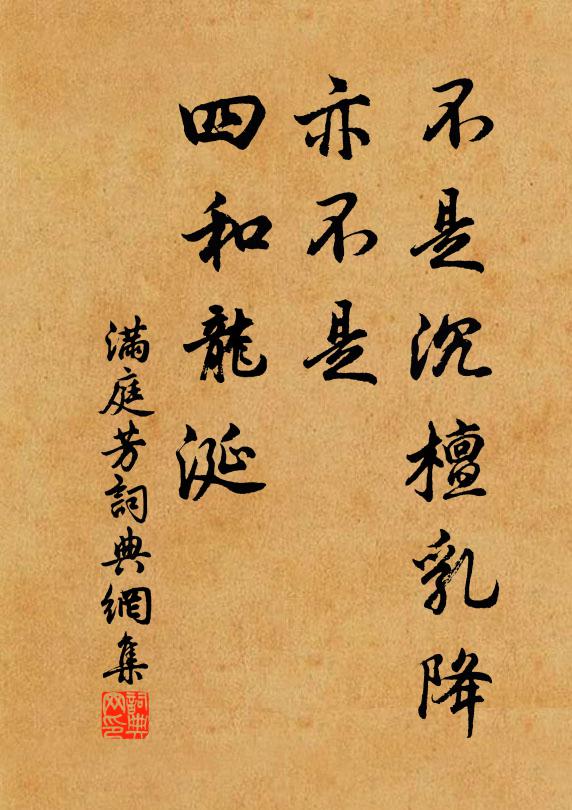 不是沉檀乳降
亦不是
四和龍涎
滿庭芳詞典網集
詞典
网印